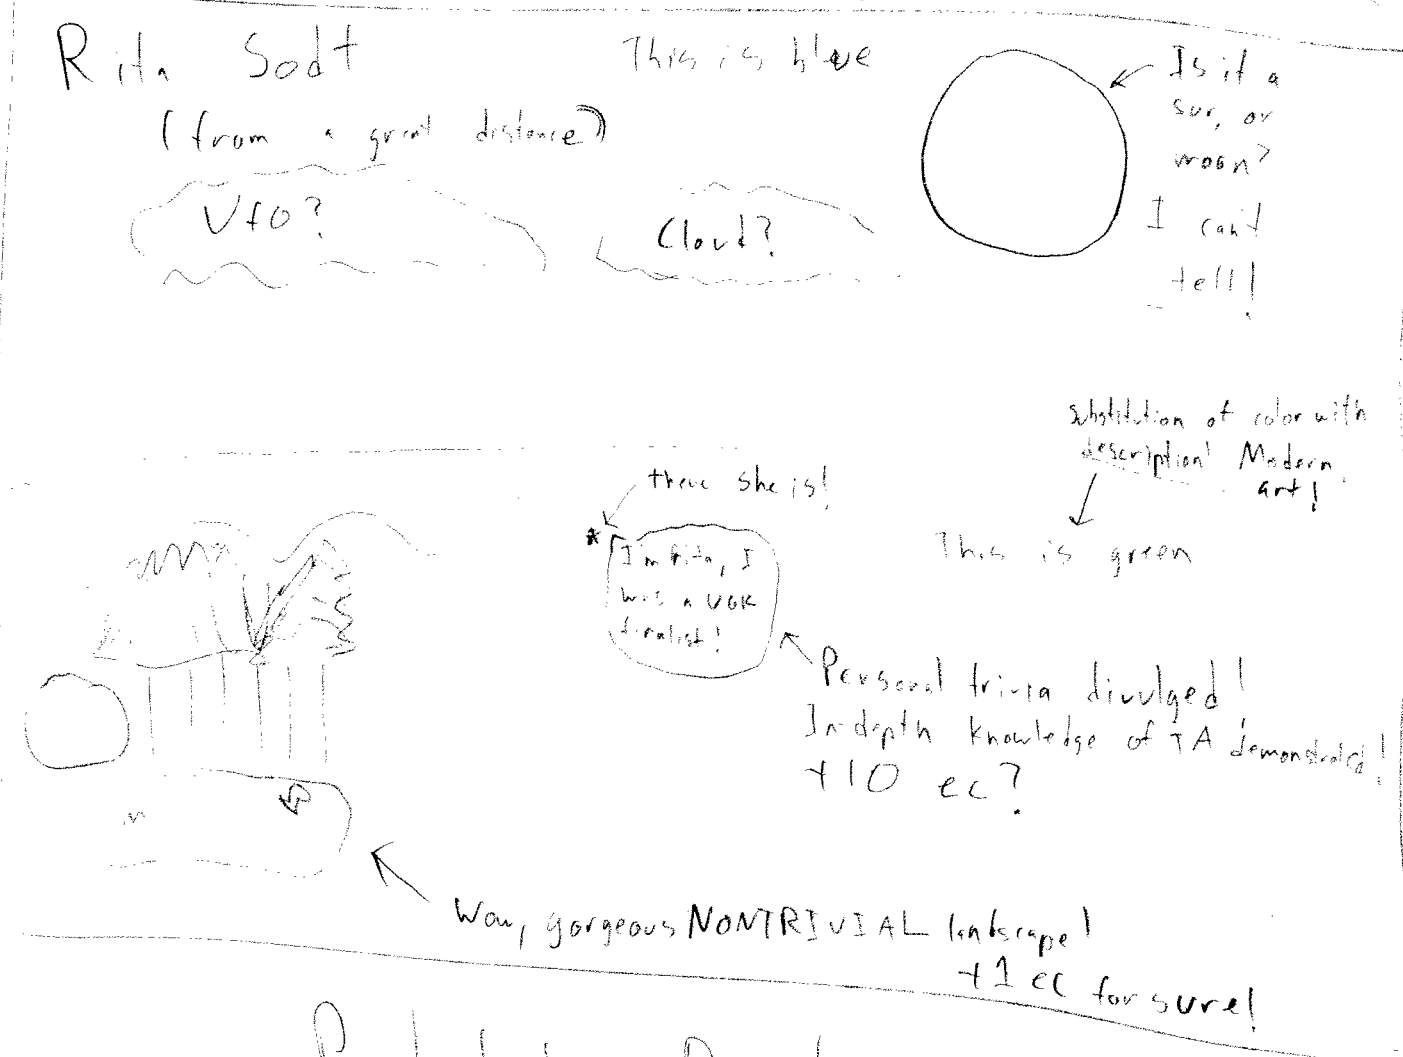 Rita Sodt
This is blue
(from a great distance)
Is it a
sun, or
moon?
I can't
tell!
UFO?
Cloud?
substitution of color with
description! Modern
art!
there she is!
This is green
*
I'm Rita, I
was a UGK
finalist!
Personal trivia divulged!
In-depth knowledge of TA demonstrated!
+10 ec?
Wow, gorgeous NONTRIVIAL landscape!
+1 ec for sure!